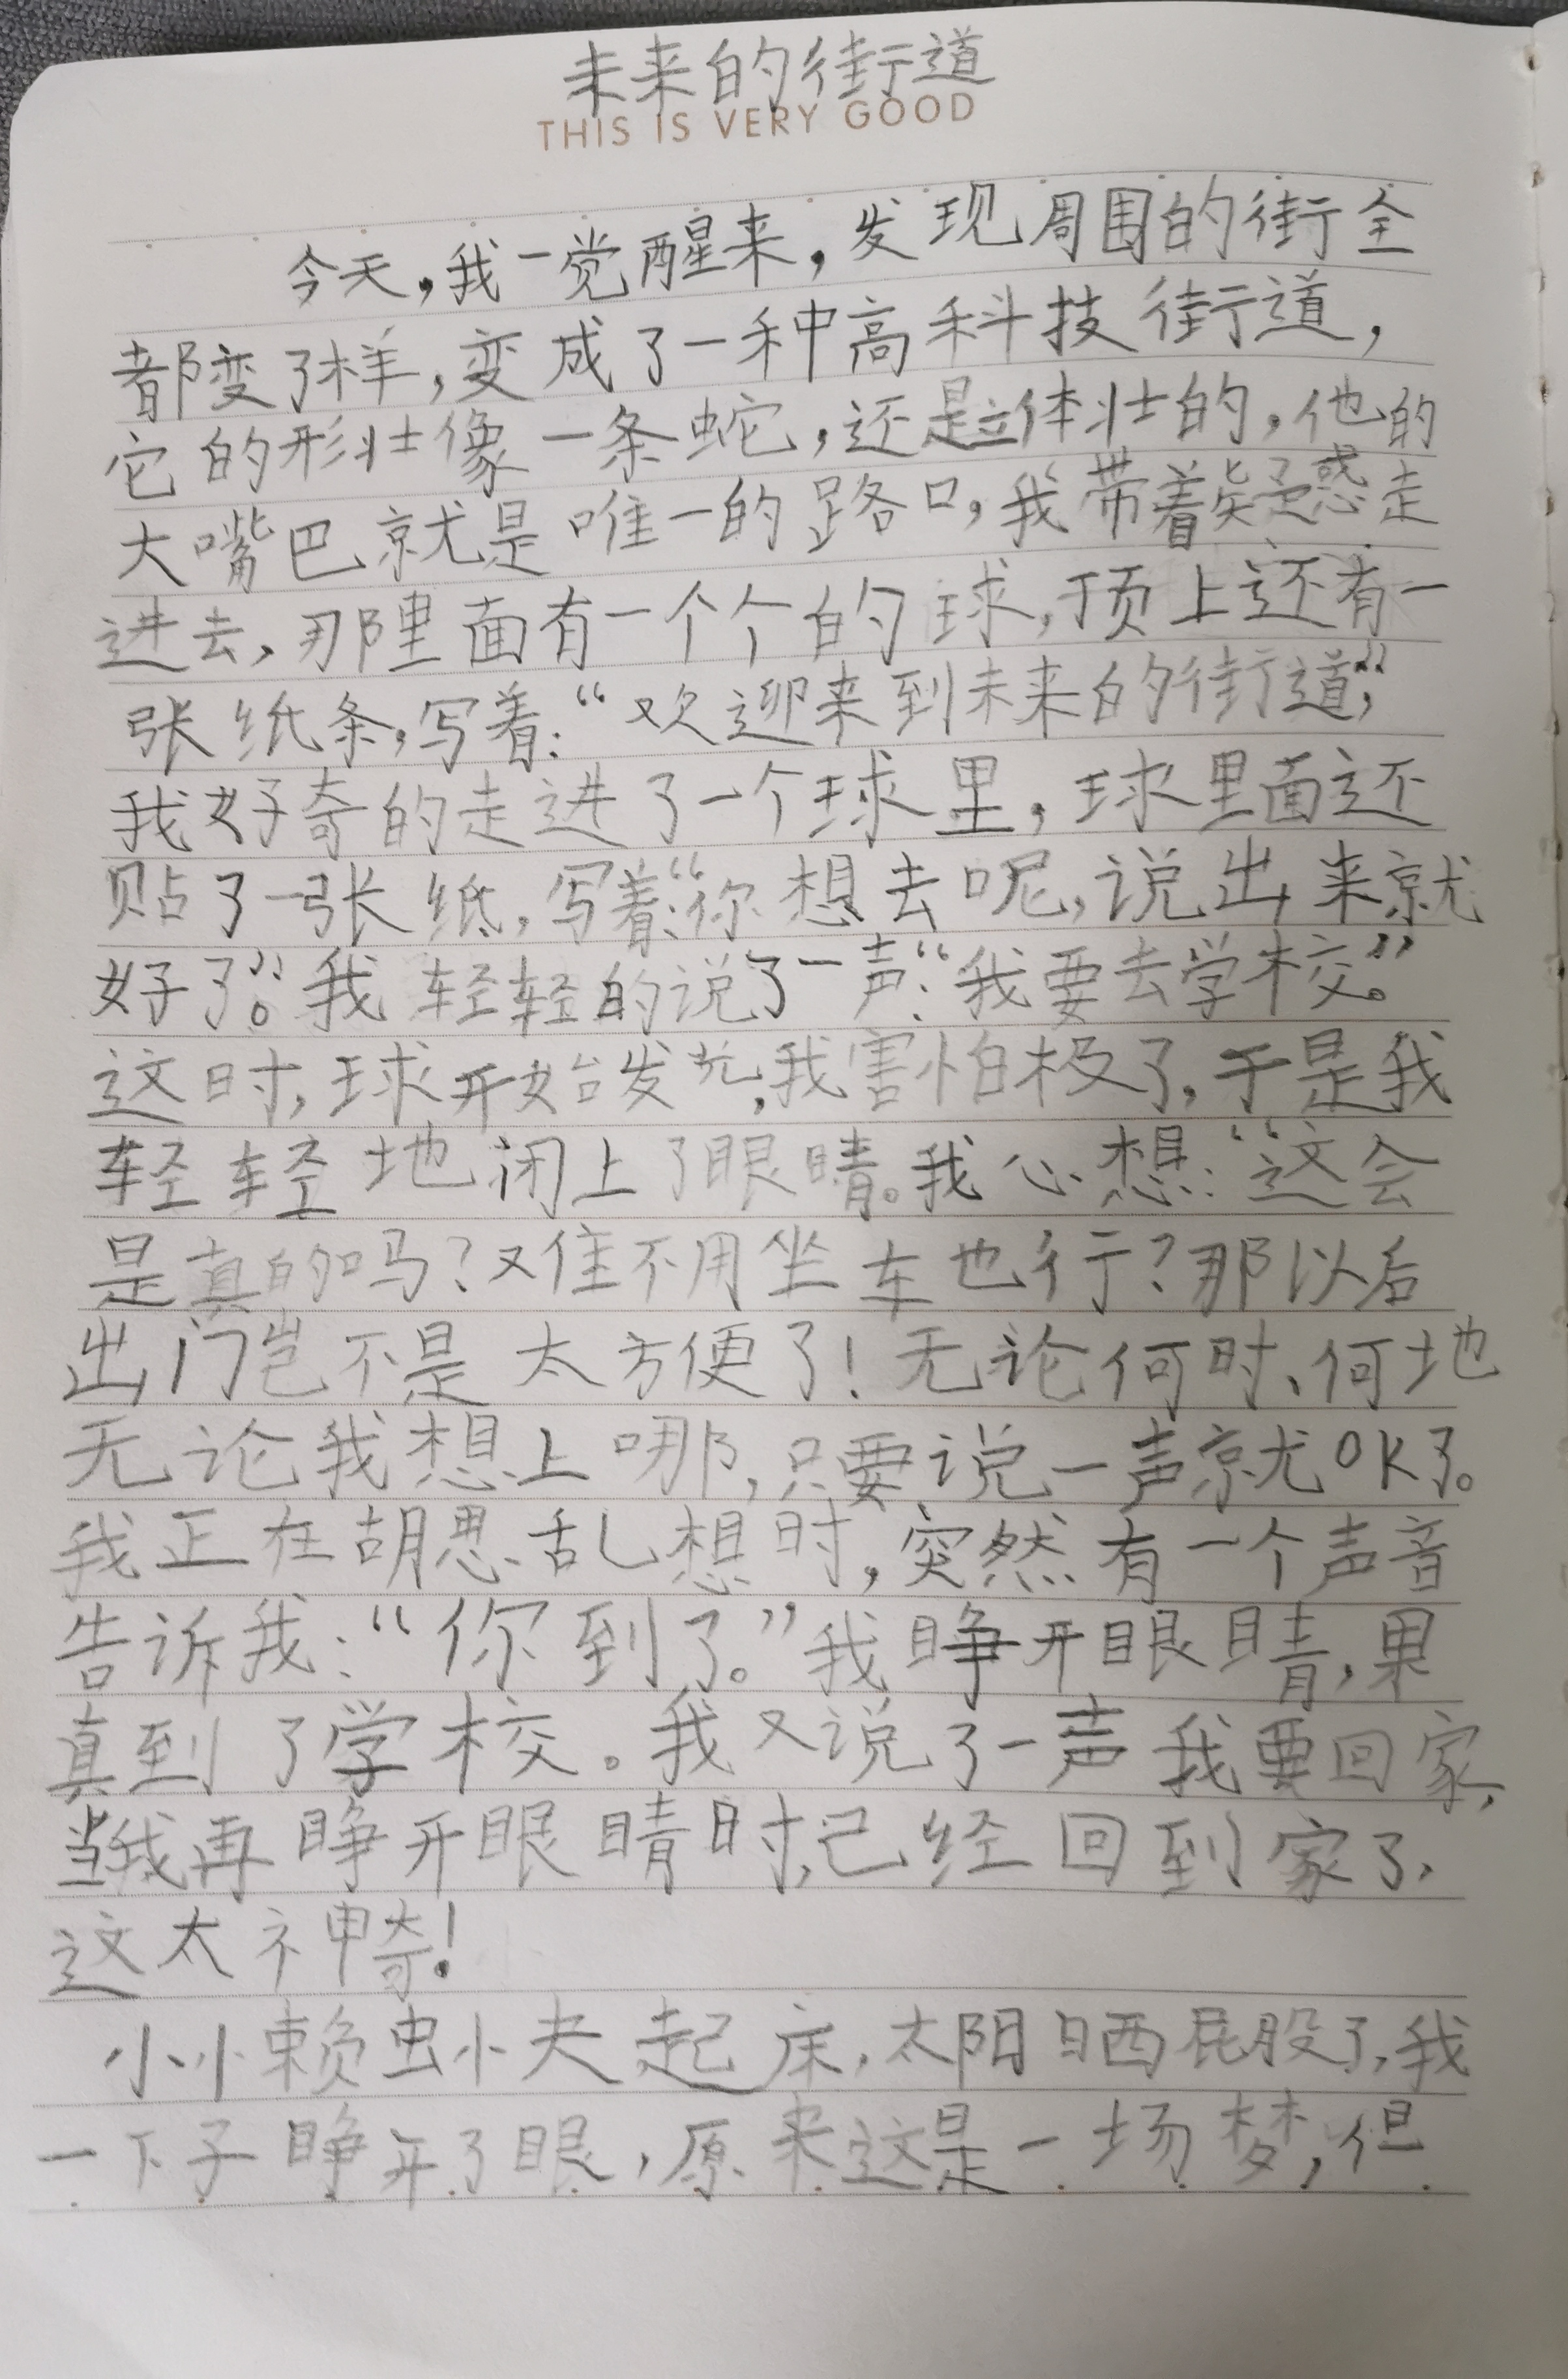 未来的街道
THIS IS VERY GOOD
今天,我一觉醒来,发现周围的街全
都变了样,变成了一种高科技街道,
它的形壮像一条蛇,还是立体壮的,他的
大嘴巴就是唯一的路口,我带着疑惑走
进去,那里面有一个个的球,顶上还有一
张纸条,写着:“欢迎来到未来的街道”,
我好奇的走进了一个球里,球里面还
贴了一张纸,写着:“你想去呢,说出来就
好了。”我轻轻的说了一声:“我要去学校。”
这时,球开始发光,我害怕极了,于是我
轻轻地闭上了眼睛。我心想:“这会
是真的吗?难不用坐车也行?那以后
出门岂不是太方便了!无论何时、何地
无论我想上哪,只要说一声就OK了。
我正在胡思乱想时,突然有一个声音
告诉我:“你到了。”我睁开眼睛,果
真到了学校。我又说了一声我要回家,
当我再睁开眼睛时,已经回到家了,
这太神奇!
小小赖虫小夫起床,太阳晒屁股了,我
一下子睁开了眼,原来这是一场梦,但